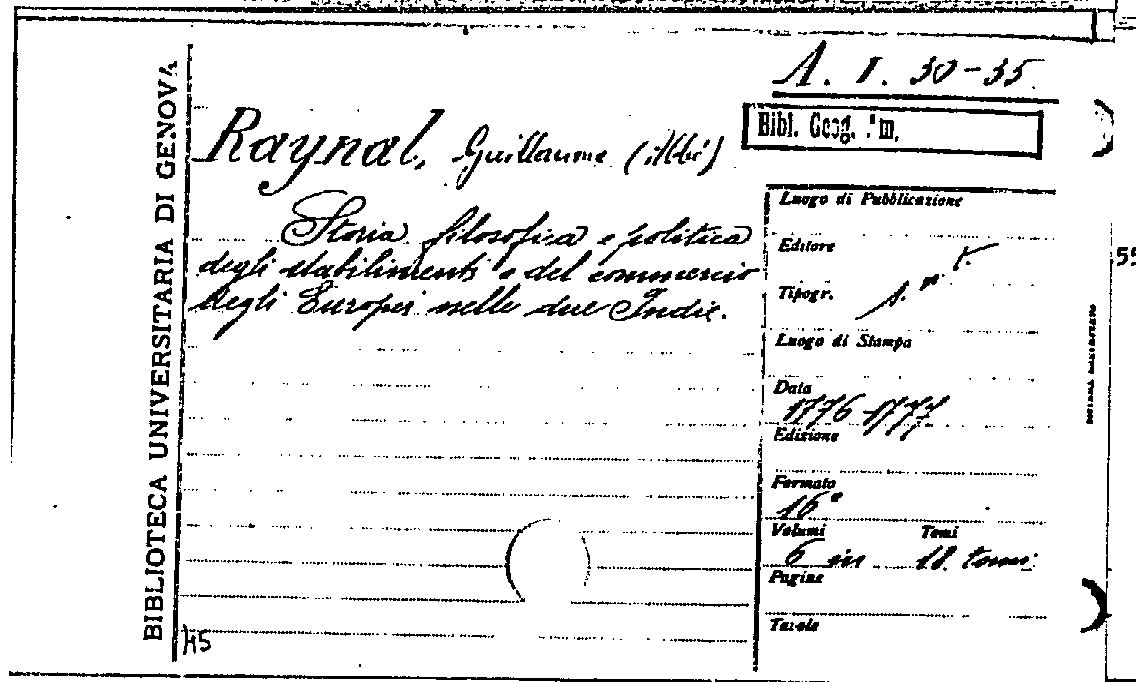 BIBLIOTECA UNIVERSITARIA DI GENOVA
A. I. 30-35
Bibl. Geog.
Raynal, Guillaume (Abbé)
Storia filosofica e politica
degli stabilimenti e del commercio
degli Europei nelle due Indie.
Luogo di Pubblicazione
Editore
Tipogr.
Luogo di Stampa
Data
1776-1777
Edizione
Formato
16°
Volumi Tomi
6 in 18 tomi
Pagine
Tavole
55